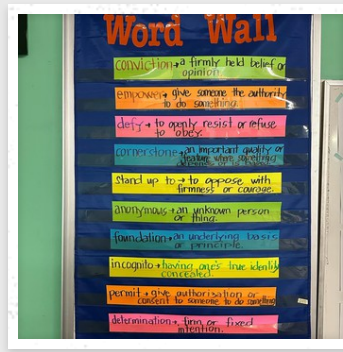 Word Wall
conviction → a firmly held belief or
opinion.
empower → give someone the authority
to do something.
defy → to openly resist or refuse
to obey.
cornerstone → an important quality or
feature where something
stand up to → to oppose with
firmness or courage.
anonymous → an unknown person
or thing.
foundation → an underlying basis
or principle.
incognito → having one's true identity
concealed.
permit → give authorization or
consent to someone to do something
determination → firm or fixed
intention.